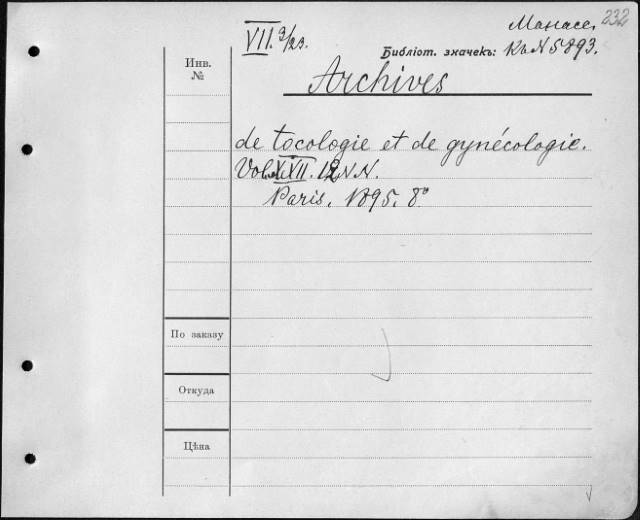 232
VII. 3/23.
Манасе.
Библіот. значекъ: Къ N 5893.
Инв.
№
Archives
de tocologie et de gynécologie.
XXII. 12 N.N.
Paris. 1895. 8°
По заказу
Откуда
Цѣна